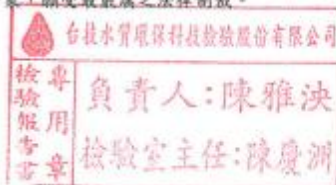 台技水質環保科技檢驗股份有限公司
檢驗報告書
專用章
負責人:陳雅泱
檢驗室主任:陳慶湖